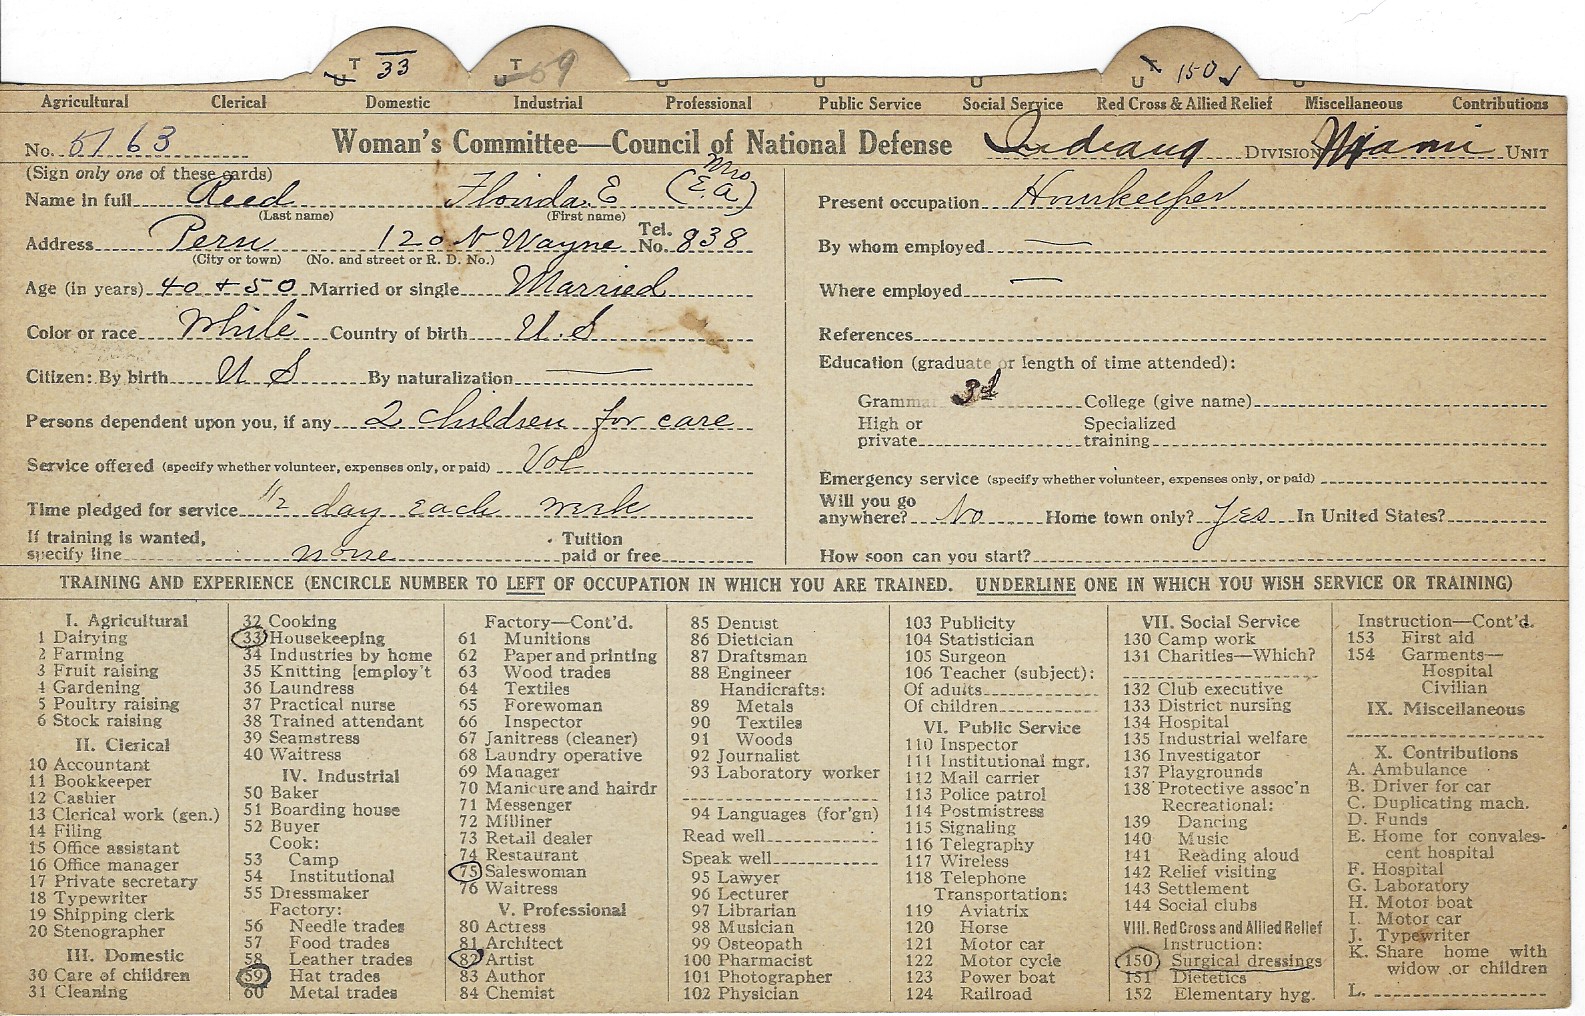 U T 33 U T 59 U U U U T 150 U
Agricultural Clerical Domestic Industrial Professional Public Service Social Service Red Cross & Allied Relief Miscellaneous Contributions
No. 5763 Woman's Committee—Council of National Defense Indiana DIVISION Miami UNIT
(Sign only one of these cards)
Name in full Reed Florida E (Mrs E. A)
(Last name) (First name)
Address Peru 120 N Wayne Tel. No. 838
(City or town) (No. and street or R. D. No.)
Age (in years) 40 + 50 Married or single Married
Color or race White Country of birth U. S
Citizen: By birth U S By naturalization
Persons dependent upon you, if any 2 children for care
Service offered (specify whether volunteer, expenses only, or paid) Vol
Time pledged for service 1/2 day each week
If training is wanted,
specify line none Tuition paid or free
Present occupation Housekeeper
By whom employed —
Where employed —
References
Education (graduate or length of time attended):
Grammar 3d College (give name)
High or private Specialized training
Emergency service (specify whether volunteer, expenses only, or paid)
Will you go anywhere? No Home town only? Yes In United States?
How soon can you start?
TRAINING AND EXPERIENCE (ENCIRCLE NUMBER TO LEFT OF OCCUPATION IN WHICH YOU ARE TRAINED. UNDERLINE ONE IN WHICH YOU WISH SERVICE OR TRAINING)
I. Agricultural
1 Dairying
2 Farming
3 Fruit raising
4 Gardening
5 Poultry raising
6 Stock raising
II. Clerical
10 Accountant
11 Bookkeeper
12 Cashier
13 Clerical work (gen.)
14 Filing
15 Office assistant
16 Office manager
17 Private secretary
18 Typewriter
19 Shipping clerk
20 Stenographer
III. Domestic
30 Care of children
31 Cleaning
32 Cooking
33 Housekeeping
34 Industries by home
35 Knitting [employ't
36 Laundress
37 Practical nurse
38 Trained attendant
39 Seamstress
40 Waitress
IV. Industrial
50 Baker
51 Boarding house
52 Buyer
Cook:
53 Camp
54 Institutional
55 Dressmaker
Factory:
56 Needle trades
57 Food trades
58 Leather trades
59 Hat trades
60 Metal trades
Factory—Cont'd.
61 Munitions
62 Paper and printing
63 Wood trades
64 Textiles
65 Forewoman
66 Inspector
67 Janitress (cleaner)
68 Laundry operative
69 Manager
70 Manicure and hairdr
71 Messenger
72 Milliner
73 Retail dealer
74 Restaurant
75 Saleswoman
76 Waitress
V. Professional
80 Actress
81 Architect
82 Artist
83 Author
84 Chemist
85 Dentist
86 Dietician
87 Draftsman
88 Engineer
Handicrafts:
89 Metals
90 Textiles
91 Woods
92 Journalist
93 Laboratory worker
94 Languages (for'gn)
Read well
Speak well
95 Lawyer
96 Lecturer
97 Librarian
98 Musician
99 Osteopath
100 Pharmacist
101 Photographer
102 Physician
103 Publicity
104 Statistician
105 Surgeon
106 Teacher (subject):
Of adults
Of children
VI. Public Service
110 Inspector
111 Institutional mgr.
112 Mail carrier
113 Police patrol
114 Postmistress
115 Signaling
116 Telegraphy
117 Wireless
118 Telephone
Transportation:
119 Aviatrix
120 Horse
121 Motor car
122 Motor cycle
123 Power boat
124 Railroad
VII. Social Service
130 Camp work
131 Charities—Which?
132 Club executive
133 District nursing
134 Hospital
135 Industrial welfare
136 Investigator
137 Playgrounds
138 Protective assoc'n
Recreational:
139 Dancing
140 Music
141 Reading aloud
142 Relief visiting
143 Settlement
144 Social clubs
VIII. Red Cross and Allied Relief
Instruction:
150 Surgical dressings
151 Dietetics
152 Elementary hyg.
Instruction—Cont'd.
153 First aid
154 Garments—
Hospital
Civilian
IX. Miscellaneous
X. Contributions
A. Ambulance
B. Driver for car
C. Duplicating mach.
D. Funds
E. Home for convales-
cent hospital
F. Hospital
G. Laboratory
H. Motor boat
I. Motor car
J. Typewriter
K. Share home with
widow or children
L.